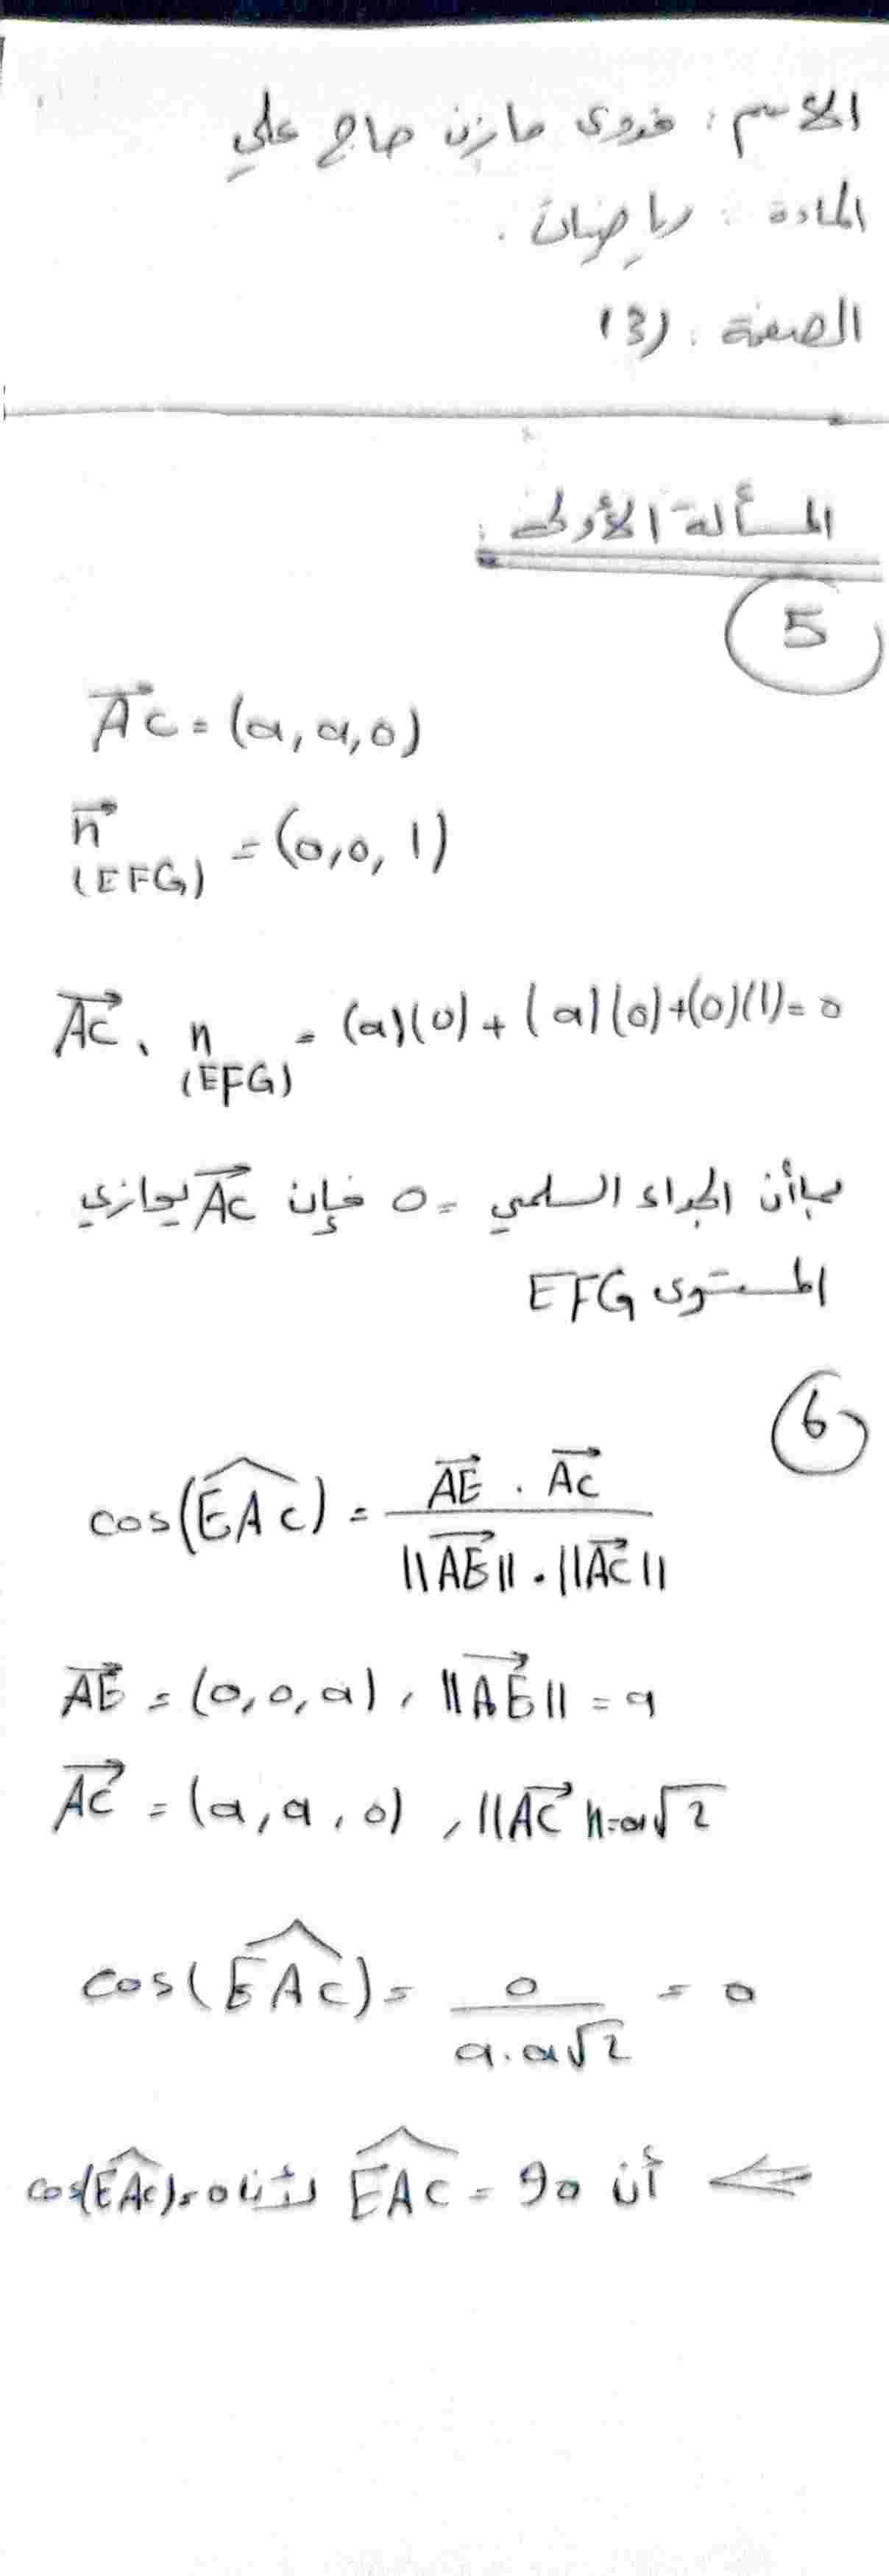 الاسم : فدوى مازن حاج علي
المادة : رياضيات .
الصفحة : (3)
المسألة الأولى :
5
AC = (a, a, 0)
n (EFG) = (0, 0, 1)
AC . n (EFG) = (a)(0) + (a)(0) + (0)(1) = 0
بما أن الجداء السلمي = 0 فإن AC يوازي
المستوى EFG
6
cos(EAC) = AE . AC / ||AE|| . ||AC||
AE = (0, 0, a) , ||AE|| = a
AC = (a, a, 0) , ||AC|| = a√2
cos(EAC) = 0 / a . a√2 = 0
⇐ أن EAC = 90 لأننا cos(EAC) = 0